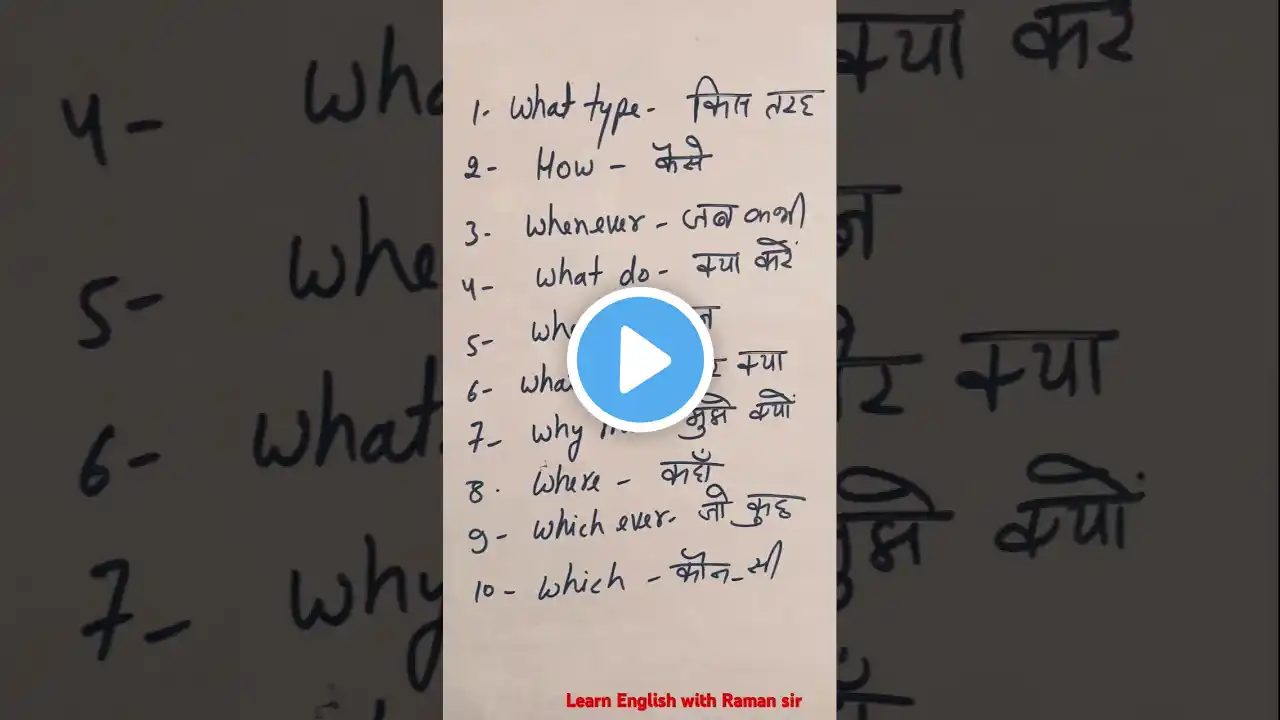 1. What type - किस तरह
2 - How - कैसे
3 - Whenever - जब कभी
4 - What do - क्या करें
5 -
6 - क्या
7 - why मुझे क्यों
8. Where - कहाँ
9 - Which ever. जो कुछ
10 - Which - कौन-सी
Learn English with Raman sir